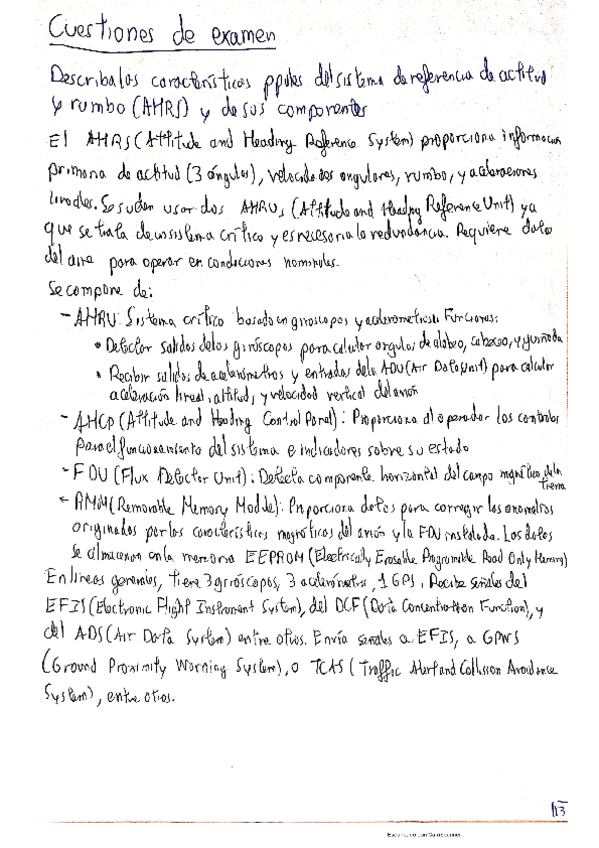 Cuestiones de examen
Describa las características ppales del sistema de referencia de actitud
y rumbo (AHRS) y de sus componentes
El AHRS (Attitude and Heading Reference System) proporciona información
primaria de actitud (3 ángulos), velocidades angulares, rumbo, y aceleraciones
lineales. Se suelen usar dos AHRUs (Attitude and Heading Reference Unit) ya
que se trata de un sistema crítico y es necesaria la redundancia. Requiere datos
del aire para operar en condiciones nominales.
Se compone de:
- AHRU: Sistema crítico basado en giroscopos y acelerometros. Funciones:
• Detectar salidas de los giróscopos para calcular angulos de alabeo, cabeceo, y guiñada
• Recibir salidas de acelerómetros y entradas de la ADU (Air Data Unit) para calcular
aceleración lineal, altitud, y velocidad vertical del avión
- AHCP (Attitude and Heading Control Panel): Proporciona al operador los controles
para el funcionamiento del sistema e indicadores sobre su estado
- FDU (Flux Detector Unit): Detecta componente horizontal del campo magnético de la
Tierra
- RMM (Removable Memory Module): Proporciona datos para corregir las anomalías
originadas por las características magnéticas del avión y la FDU instalada. Los datos
se almacenan en la memoria EEPROM (Electrically Erasable Programable Read Only Memory)
En líneas generales, tiene 3 giróscopos, 3 acelerómetros, 1 GPS. Recibe señales del
EFIS (Electronic Flight Instrument System), del DCF (Data Concentration Function), y
del ADS (Air Data System) entre otros. Envía señales a EFIS, a GPWS
(Ground Proximity Warning System), o TCAS (Traffic Alert and Collision Avoidance
System), entre otros.
13
Escaneado con CamScanner